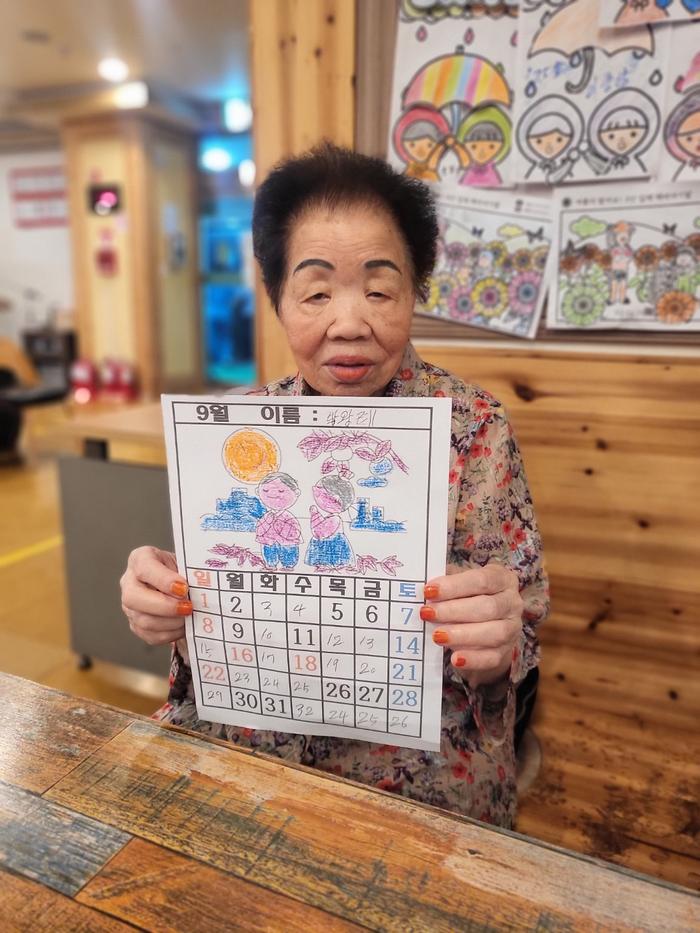 9월 이름 :
일 월 화 수 목 금 토
1 2 3 4 5 6 7
8 9 10 11 12 13 14
15 16 17 18 19 20 21
22 23 24 25 26 27 28
29 30 31 32 24 25 26